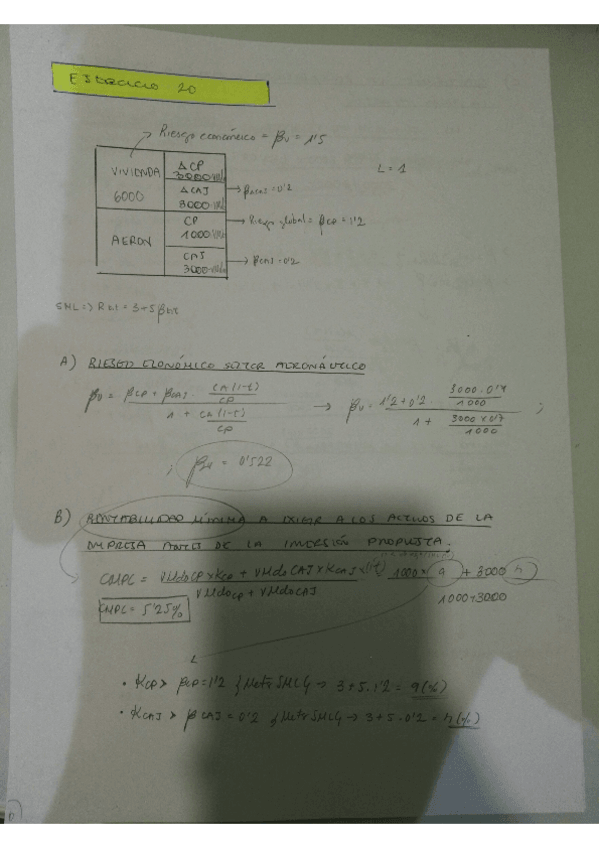 EJERCICIO 20
Riesgo económico = βU = 1'5
VIVIENDA
6000
Δ CP
3000
Δ CAJ
3000
βCAJ = 0'2
L = 1
AERON
CP
1000
Riesgo global = βCP = 1'2
CAJ
3000
βCAJ = 0'2
SML => = 3+5β
A) RIESGO ECONÓMICO SECTOR AERONÁUTICO
βU = βCP + βCAJ · CA(1-t)/CP / 1 + CA(1-t)/CP → βU = 1'2+0'2 · 3000·0'7/1000 / 1 + 3000×0'7/1000 ;
; βU = 0'522
B) RENTABILIDAD MÍNIMA A EXIGIR A LOS ACTIVOS DE LA
EMPRESA ANTES DE LA INVERSIÓN PROPUESTA.
CMPC = VMdoCP×KCP + VMdoCAJ×KCAJ×(1-t) / VMdoCP + VMdoCAJ 1000×9 + 3000 / 1000+3000
CMPC = 5'25%
• KCP > βCP = 1'2 {Meto SML} → 3+5·1'2 = 9(%)
• KCAJ > βCAJ = 0'2 {Meto SML} → 3+5·0'2 = 4(%)